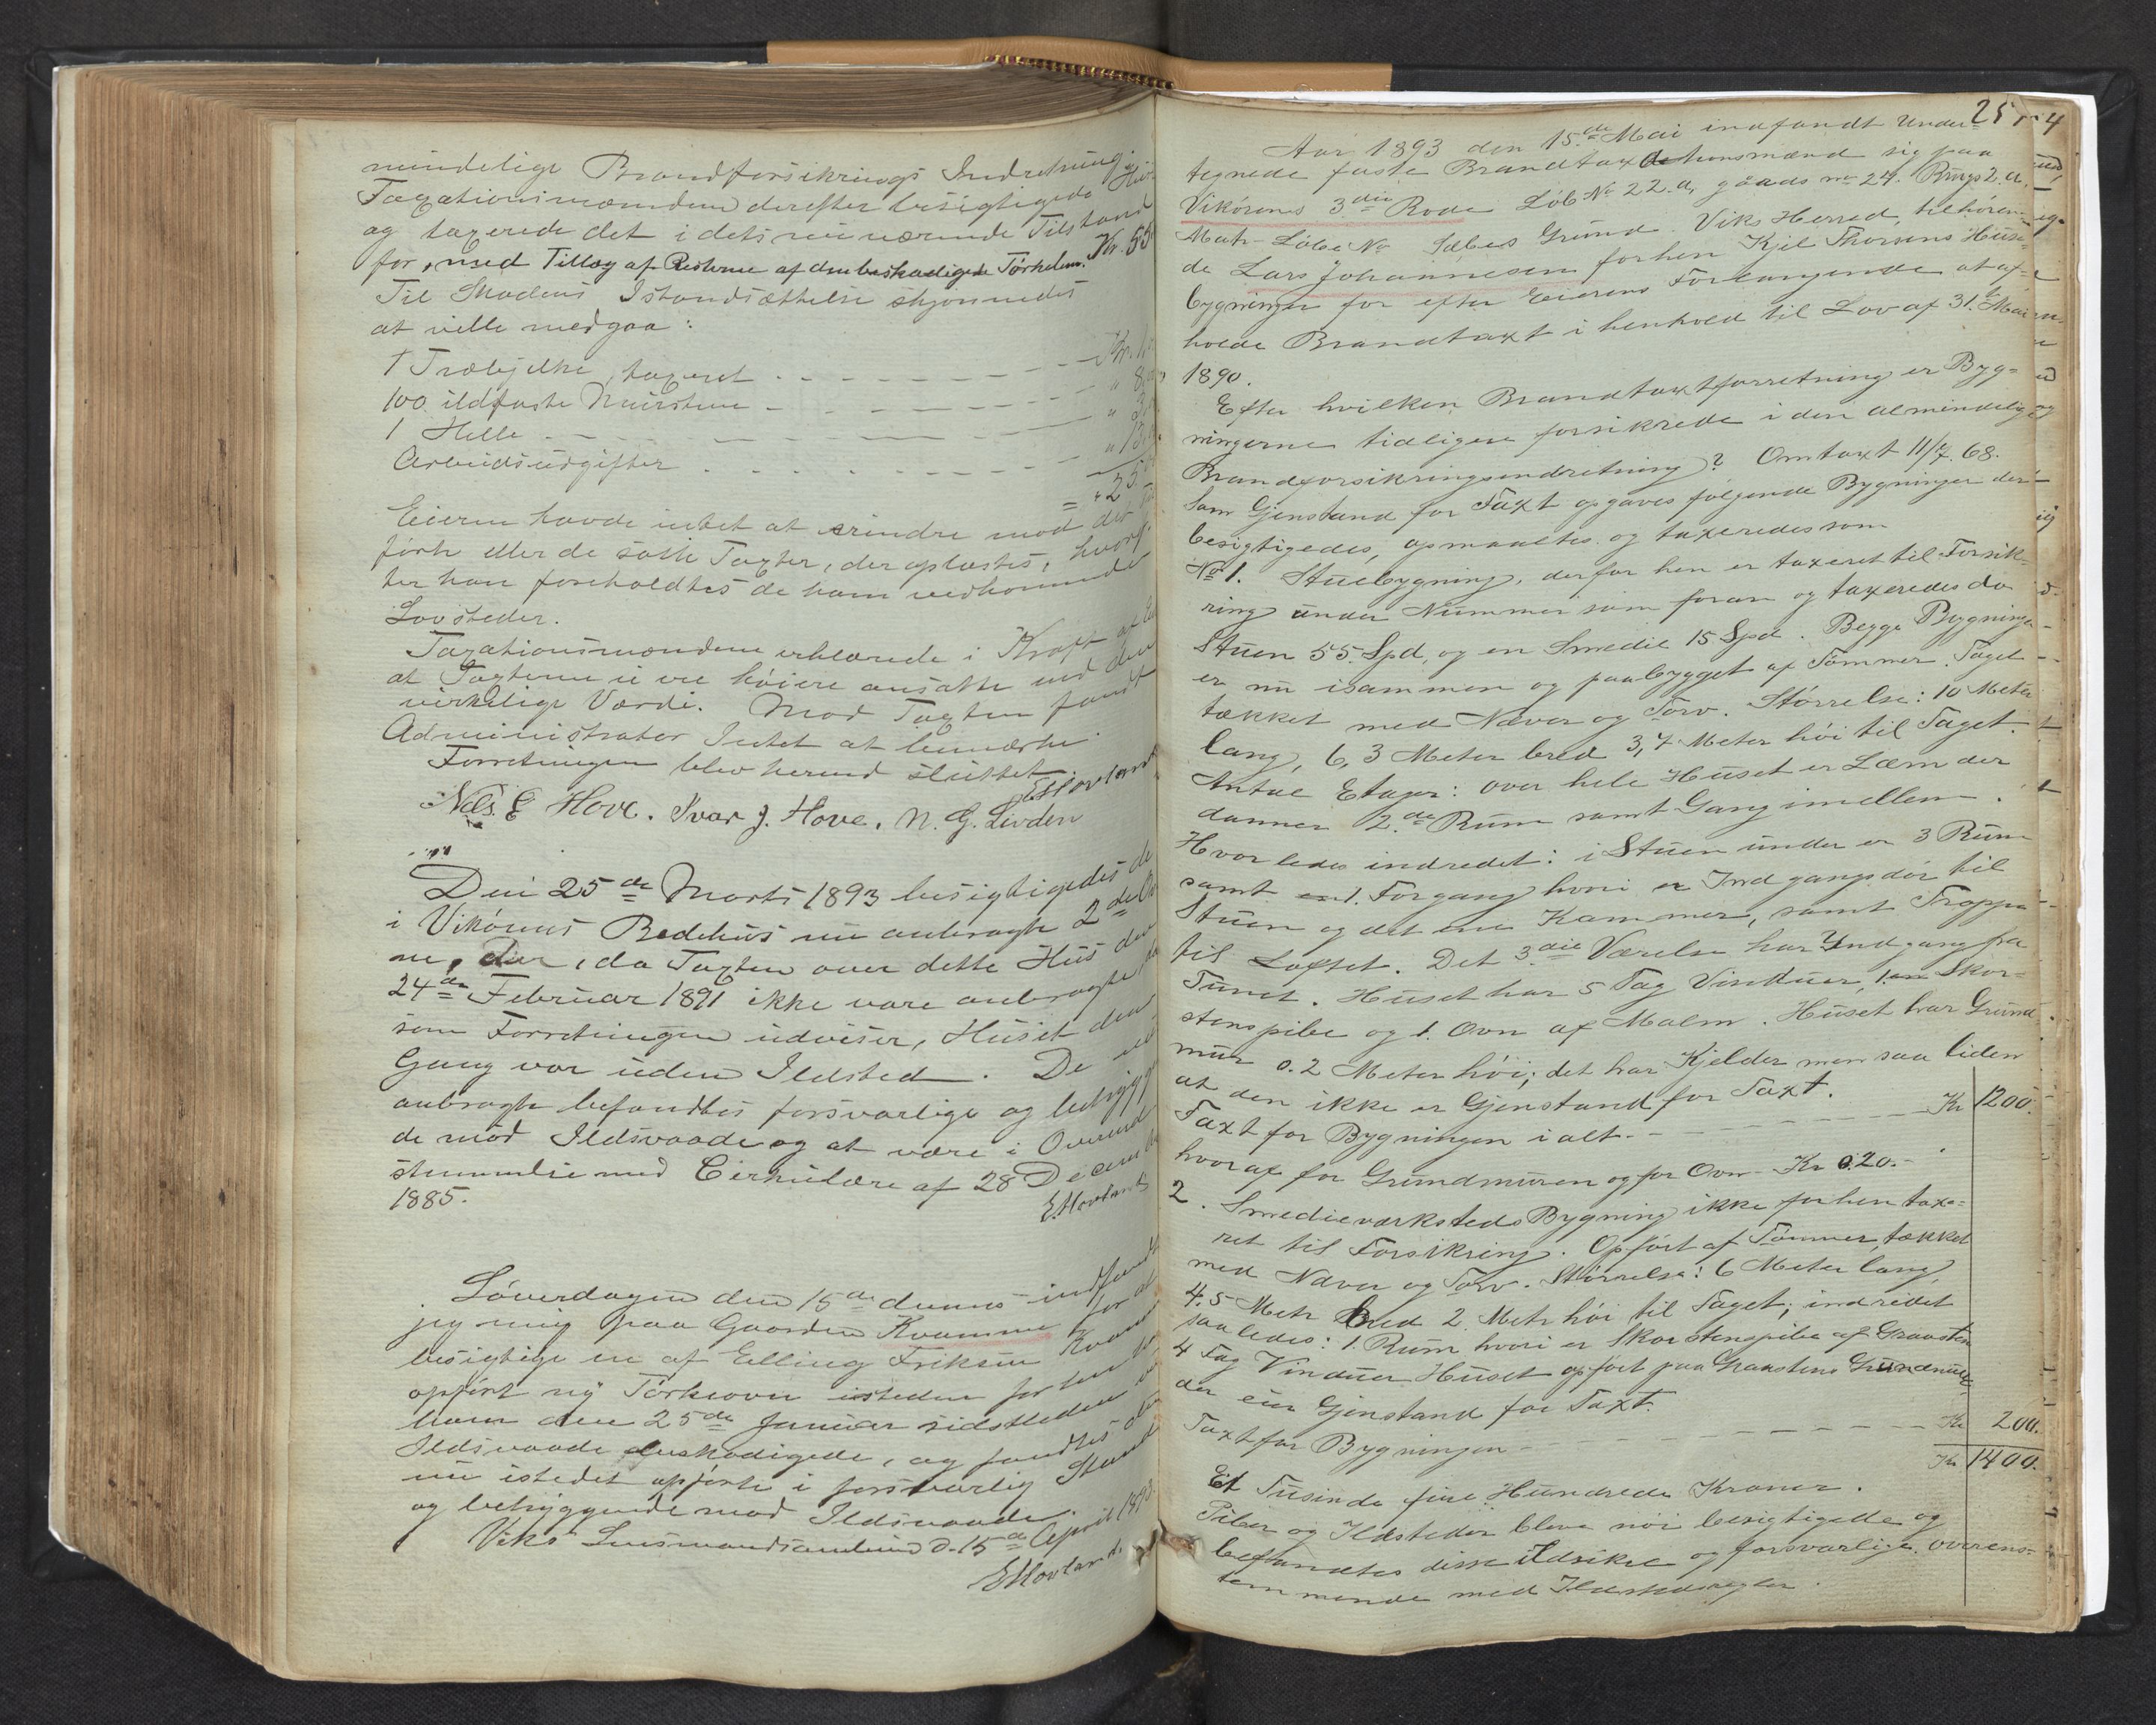 mindelige Brandforsikrings Indretning.
Taxationsmændene derefter besigtigede Huset
og taxerede det i dets nuværende Tilstand
for, med Tillæg af Resterne af den beskadigede Tørkeovn. Kr. 55
Til Skadens Istandsættelse skjønnedes
at ville medgaa:
1 Træbjelke, taxeret - - - Kr. 1,
100 ildfaste Muurstene - - - " 8,
1 Helle - - - " 3,
Arbeidsudgifter - - - " 13,
= 25
Eieren havde intet at erindre mod det
førte eller de satte Taxter, der oplæstes, hvoref-
ter han foreholdtes de ham vedkommende
Lovsteder.
Taxationsmændene erklærede i Kraft af
at Taxterne ei ere høiere ansatte end den
virkelige Værdi. Mod Taxten fandt
Administrator Intet at bemærke.
Forretningen blev hermed sluttet.
EHovland
Nils E Hove. Ivar J. Hove. N. G. Livden
Den 25de Marts 1893 besigtigedes de
i Vikørens Bedehus nu anbragte 2de
ne, der, da Taxten over dette Hus den
24de Februar 1891 ikke vare anbragte
som Forretningen udviser, Huset den
Gang var uden Ildsted. De
anbragte befandtes forsvarlige og betryggen
de mod Ildsvaade og at være i Overens-
stemmelse med Cirkulære af 28 December
1885.
EHovland
Løverdagen den 15de dennes indfandt
jeg mig paa Gaarden Kvamme for at
besigtige en af Elling Eriksen Kvamme
opført ny Tørkeovn isteden for den
ham den 25de Januar sidstleden ved
Ildsvaade beskadigede, og fandtes den
nu istedet opførte i forsvarlig Stand
og betryggende mod Ildsvaade.
Viks Lensmandsembede d. 15de April 1893
EHovland.
254
Aar 1893 den 15.de Mai indfandt Under-
tegnede faste Brandtaxationsmænd sig paa
Vikørens 3die Rode Løb No 22.a, gaards no 24. Brugs 2.a,
Matr-Løbe No Sæbøs Grund. Viks Herred, tilhøren-
de Lars Johannesen forhen Kjel Thorsens Huse-
bygninger for efter Eierens Forlangende at af-
holde Brandtaxt i henhold til Lov af 31. Mai
1890.
Efter hvilken Brandtaxtforretning er Byg-
ningerne tidligere forsikrede i den almindelige
Brandforsikringsindretning? Omtaxt 11/7. 68.
Som Gjenstand for Taxt opgaves følgende Bygninger der
besigtigedes, opmaaltes og taxeredes som
No 1. Stuebygning, der forhen er taxeret til Forsik-
ring under Nummer som foran og taxeredes da
Stuen 55. Spd, og en Smedie 15 Spd. Begge Bygninger
er nu isammen og paabygget af Tømmer. Taget
tækket med Næver og Torv. Størrelse: 10 Meter
lang, 6,3 Meter bred 3,7 Meter høi til Taget.
Antal Etager: over hele Huset er Læm der
danner 2.de Rum samt Gang imellem.
Hvorledes indredet: i Stuen under er 3 Rum
samt 1. Forgang hvori er Indgangsdør til
Stuen og det ene Kammer, samt Trappe
til Loftet. Det 3.die Værelse har Indgang fra
Tunet. Huset har 5 Fag Vinduer, 1. Skor-
stenspibe og 1. Ovn af Malm. Huset har Grund
mur 0.2 Meter høi; det har Kjelder men saa liden
at den ikke er Gjenstand for Taxt.
Taxt for Bygningen ialt - - - Kr 1200.
hvoraf for Grundmuren og for Ovn - Kr 20. -
2. Smedieværksteds Bygning ikke forhen taxe-
ret til Forsikring. Opført af Tømmer, tækket
med Næver og Torv. Størrelse: 6 Meter lang,
4.5 Metr bred 2. Metr høi til Taget; indredet
saaledes: 1. Rum hvori er Skorstenspibe af Graasten
4 Fag Vinduer Huset opført paa Graastens Grundmur
der ei er Gjenstand for Taxt.
Taxt for Bygningen - - - Kr 200.
Kr 1400.
Et Tusinde fire Hundrede Kroner.
Piber og Ildsteder bleve nøie besigtigede og
befandtes disse ildsikre og forsvarlige, overens-
stemmende med Ildstedsregler.